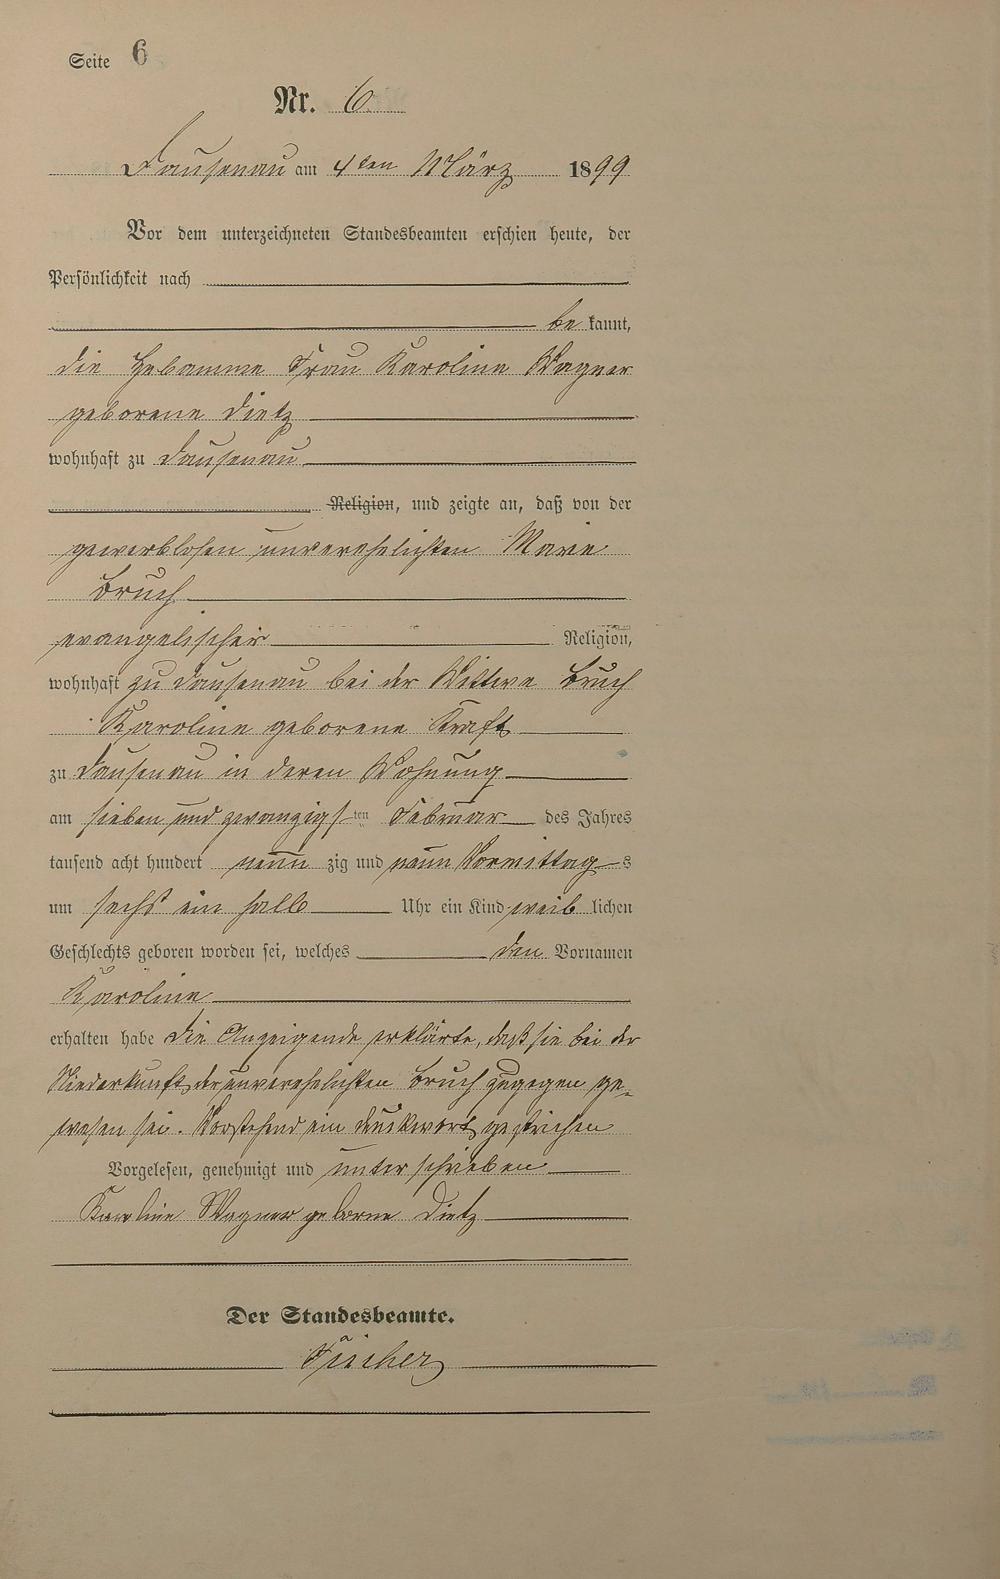 Seite 6
Nr. 6
Dausenau am 4ten März 1899
Vor dem unterzeichneten Standesbeamten erschien heute, der
Persönlichkeit nach
be kannt,
die Hebamme Frau Karoline Wagner
geborene Dietz
wohnhaft zu Dausenau
Religion, und zeigte an, daß von der
gewerblosen unverehelichten Marie
Bruch
evangelischer Religion,
wohnhaft zu Dausenau bei der Wittwe Bruch
Karoline geborene Kraft
zu Dausenau in deren Wohnung
am sieben und zwanzigsten Februar des Jahres
tausend acht hundert neun zig und neun Vormittags
um sechs ein halb Uhr ein Kind weib lichen
Geschlechts geboren worden sei, welches den Vornamen
Karoline
erhalten habe Die Anzeigende erklärte, daß sie bei der
Niederkunft der unverehelichten Bruch zugegen ge-
wesen sei. Vorstehend ein Druckwort gestrichen
Vorgelesen, genehmigt und unterschrieben
Karoline Wagner geborne Dietz
Der Standesbeamte.
Fischer